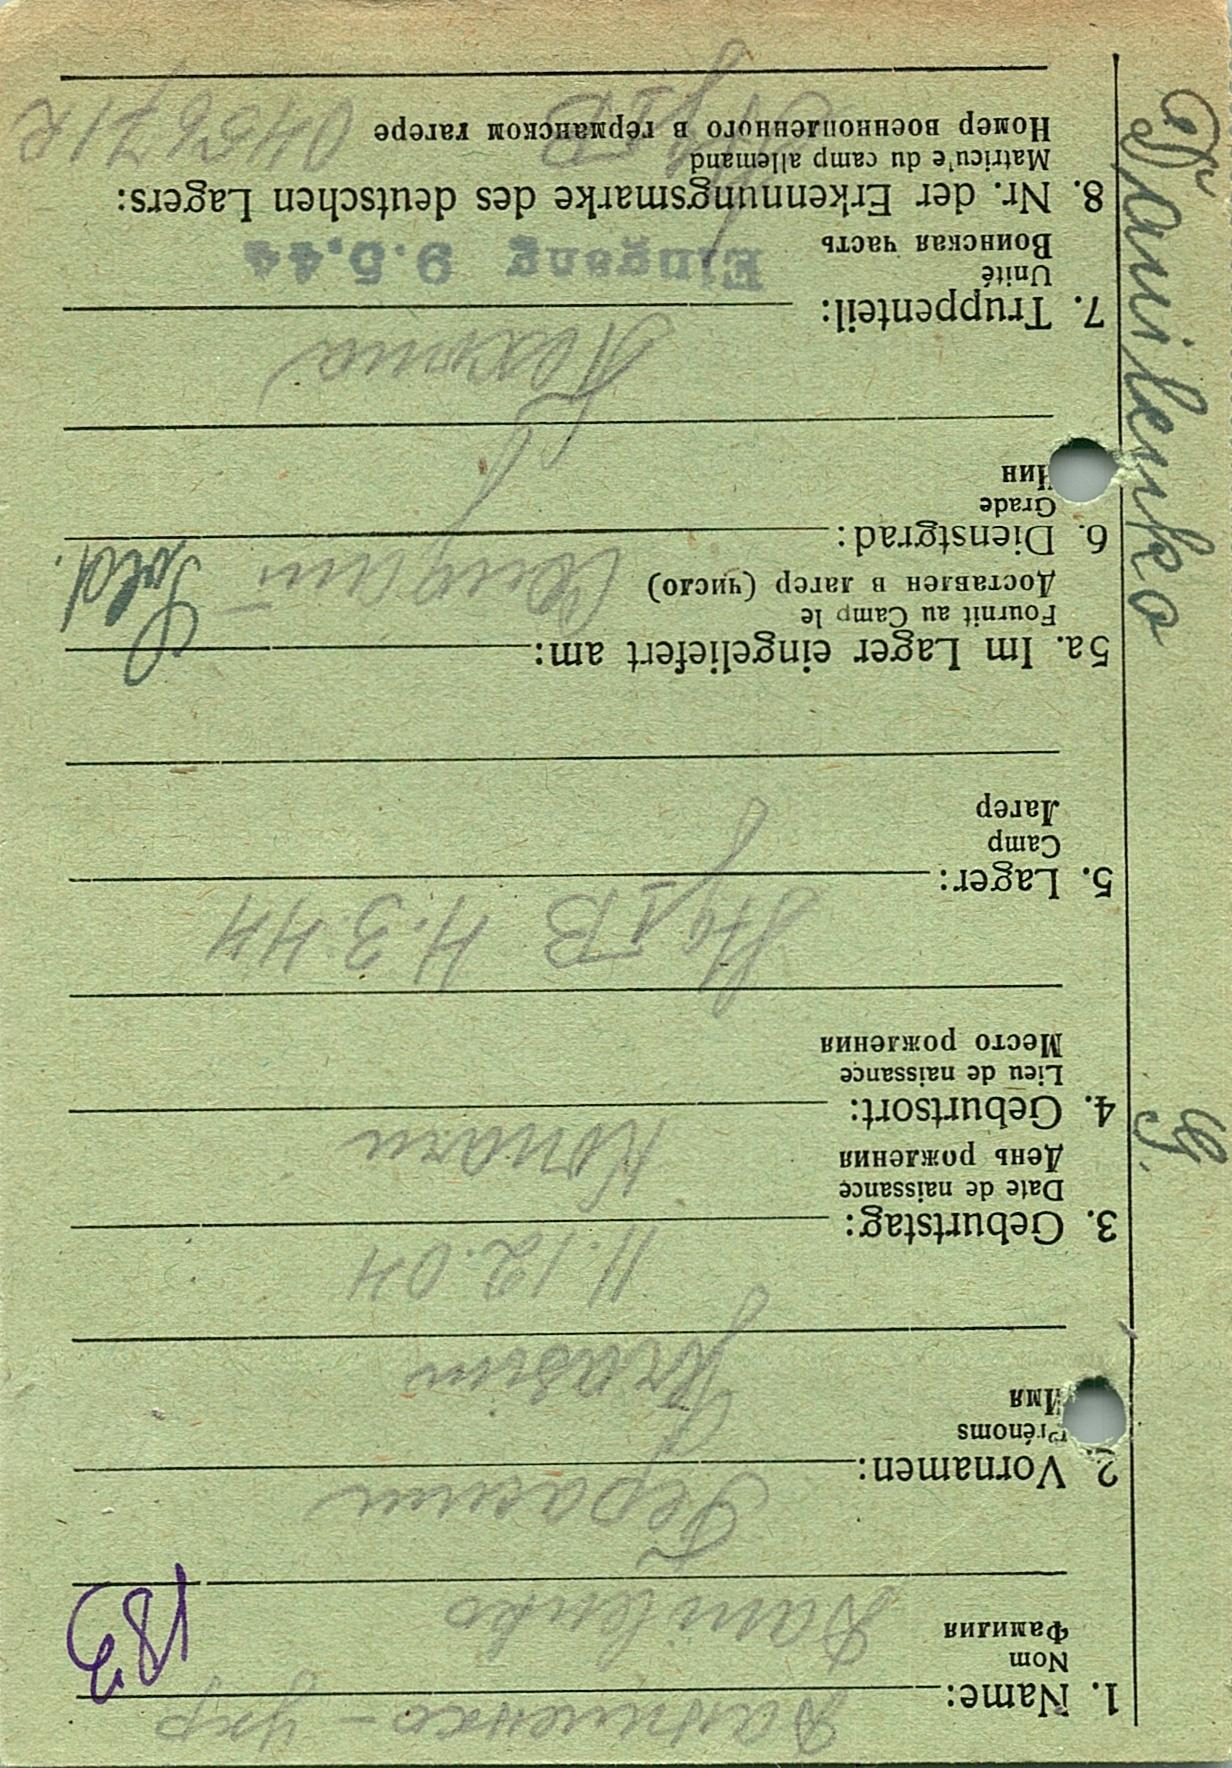 Danilenko G.
1. Name: Даниленко - укр
Nom
Фамилия
Danilenko
183
2. Vornamen: Герасим
Prénoms
Имя
3. Geburtstag: 11.12.04
Date de naissance
День рождения
4. Geburtsort:
Lieu de naissance
Место рождения
5. Lager: Stg I B 4.3.44
Camp
Лагерь
5a. Im Lager eingeliefert am:
Fournit au Camp le
Доставлен в лагерь (число)
6. Dienstgrad: Sold.
Grade
Чин
7. Truppenteil: Пехота
Unité
Воинская часть
Eingang 9.5.44
8. Nr. der Erkennungsmarke des deutschen Lagers:
Matricu'e du camp allemand
Номер военнопленного в германском лагере
Stg I B